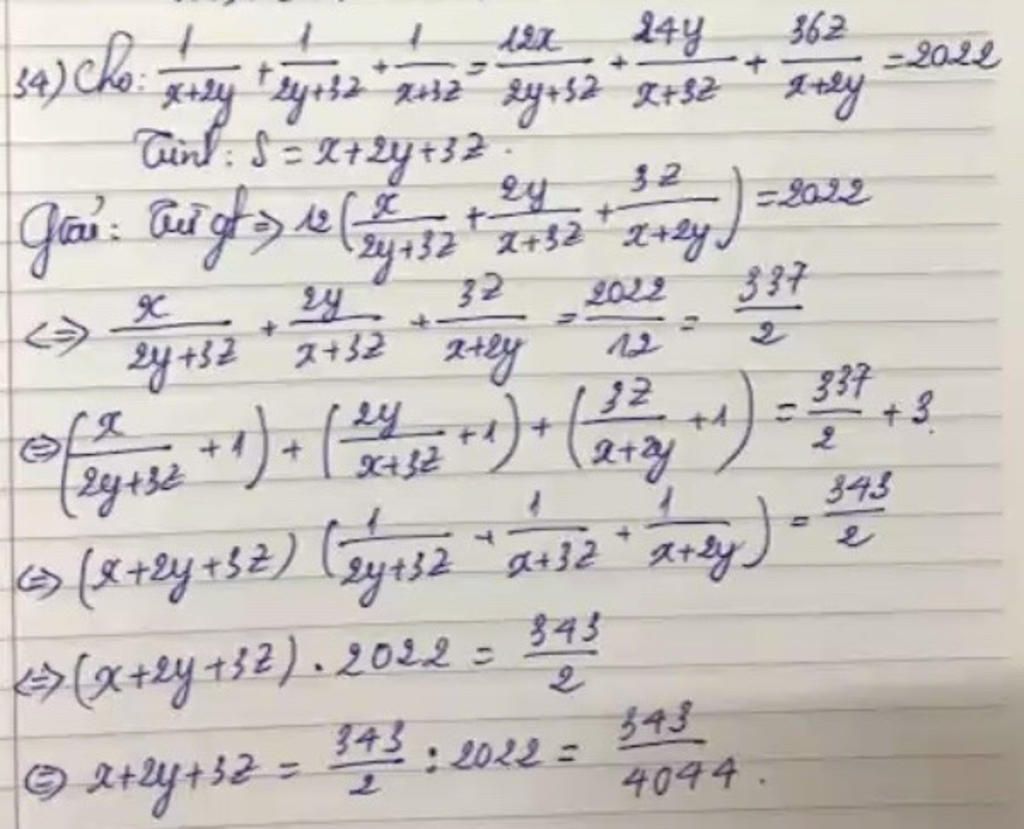 34) Cho: 1/(x+2y) + 1/(2y+3z) + 1/(x+3z) = 12x/(2y+3z) + 24y/(x+3z) + 36z/(x+2y) = 2022
Tính: S = x+2y+3z.
Giải: Từ gt => 12(x/(2y+3z) + 2y/(x+3z) + 3z/(x+2y)) = 2022
<=> x/(2y+3z) + 2y/(x+3z) + 3z/(x+2y) = 2022/12 = 337/2
<=> (x/(2y+3z) + 1) + (2y/(x+3z) + 1) + (3z/(x+2y) + 1) = 337/2 + 3.
<=> (x+2y+3z) (1/(2y+3z) + 1/(x+3z) + 1/(x+2y)) = 343/2
<=> (x+2y+3z) . 2022 = 343/2
<=> x+2y+3z = 343/2 : 2022 = 343/4044.